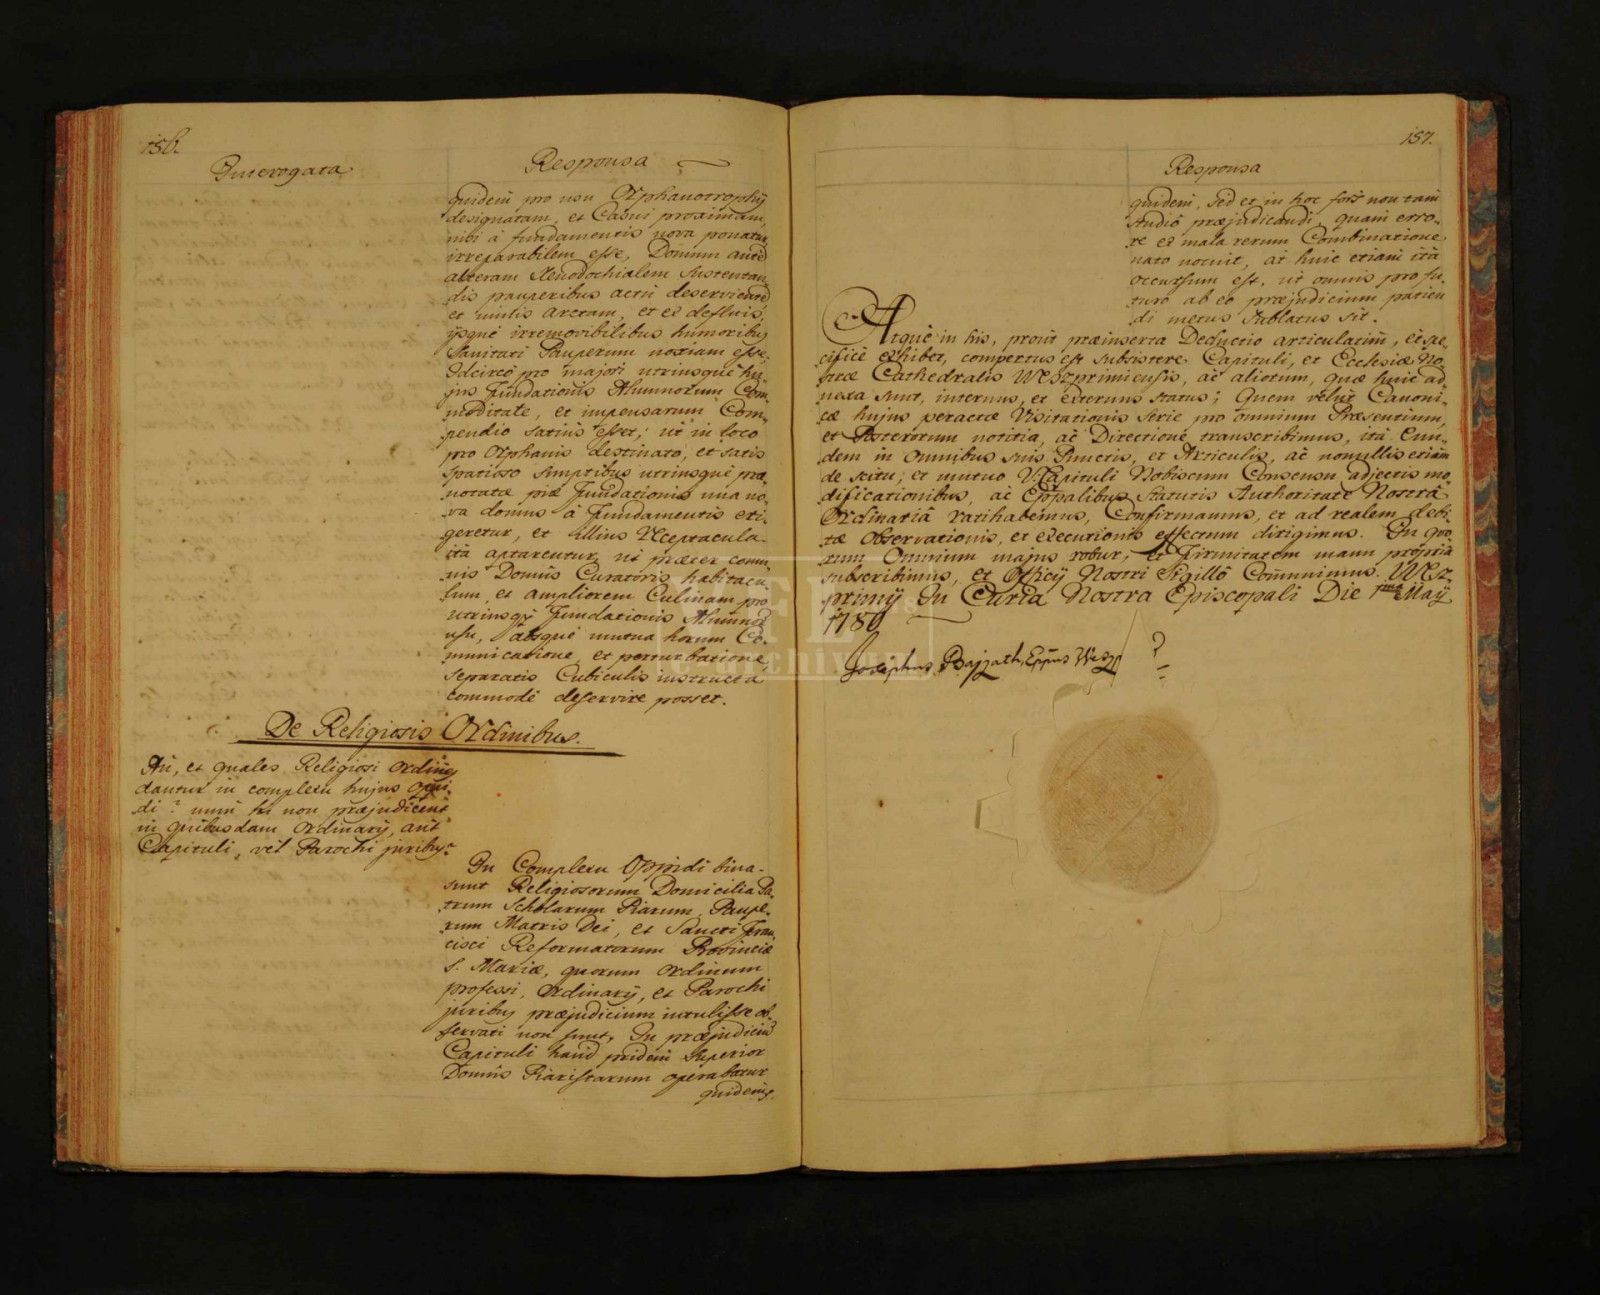 156.
Interrogata
Responsa
quidem pro non Orphanotrophij
designatam, et Casui proximam,
nisi à fundamentis nova ponatur
irreparabilem esse, Domum autē
alteram Xenodochialem sustentan-
dis pauperibus actu deservientē
et nimis arctam, et ex defluis,
ijsque irremovibilibus humoribus
Sanitati Pauperum noxiam esse.
Idcirco pro majori utriusque hu-
jus Fundationis Alumnorum Com-
moditate, et impensarum Com-
pendio satius esset; ut in loco
pro Orphanis destinato, et satis
spatioso sumptibus utriusque præ-
notatæ piæ Fundationis una no-
va domus à Fundamentis eri-
geretur, et illius Receptacula
ità aptarentur, ut præter com-
nis Domûs Curatoris habitacu-
lum, et ampliorem Culinam pro
utriusqȝ Fundationis Alumnorū
usu, absque mutua horum Co-
municatione, et perturbatione,
separatis Cubiculis instructa
commodè deservire posset.
De Religiosis Ordinibus.
An, et quales Religiosi Ordines
dantur in complexu hujus Oppi-
di? num hi non præjudicent
in quibusdam Ordinarij, aut
Capituli, vel Parochi juribus?
In Complexu Oppidi bina
sunt Religiosorum Domicilia Pa-
trum Scholarum Piarum, Paupe-
rum Matris Dei, et Sancti Fran-
cisci Reformatorum Provinciæ
S. Mariæ, quorum Ordinum
professi, Ordinarij, et Parochi
juribus præjudicium intulisse ob-
servati non sunt, In præjudiciū
Capituli haud pridem Superior
Domûs Piaristarum operabatur
quidem,
157.
Responsa
quidem, sed et in hoc forte non tam
studiô præjudicandi, quam erro-
re ex mala rerum Combinatione
nato nocuit, at huic etiam ita
occursum est, ut omnis pro fu-
turo ab eo præjudicium patien-
di metus sublatus sit.
Atque in his, prout præinserta Deductio articulatim, et spe-
cificè exhibet, compertus est subsistere Capituli, et Ecclesiæ No-
stræ Cathedralis Weszprimiensis, ac aliorum, quæ huic ad-
nexa sunt, internus, et externus status; Quem velut Canoni-
cæ hujus peractæ Visitationis serie pro omnium Præsentium,
et Posterorum notitia, ac Directione transcribimus, ità Eun-
dem in Omnibus suis Punctis, et Articulis, ac nonullis etiam
de scitu, et mutuo V. Capituli Nobiscum Consensu adjectis mo-
dificationibus, ac Eppalibus Statutis Authoritate Nostrâ
Ordinariâ ratihabemus, Confirmamus, et ad realem debi-
tæ Observationis, et executionis effectum dirigimus. In quo-
rum Omnium majus robur, et Firmitatem manu propria
subscribimus, et Officij Nostri Sigillô Communimus. Wesz-
primij In Curia Nostra Episcopali Die 1mâ Maÿ
1780
Josephus Bajzath, Eppus Weszp